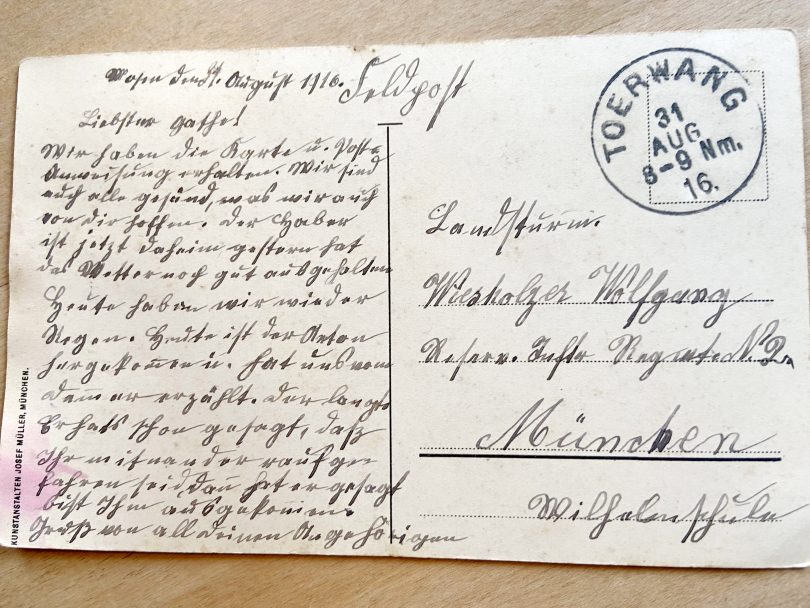 August 1916.
Feldpost
Liebster Gatte!
Wir haben die Karte u. Post=
Anweisung erhalten. Wir sind
auch alle gesund, was wir auch
von dir hoffen. Der Haber
ist jetzt daheim gestern hat
das Wetter noch gut ausgehalten
Heute haben wir wieder
Regen. Heute ist der
hergekommen u. hat uns vom
erzählt. Der
Er hats schon gesagt, daß
Ihr mitnander raufge
fahren seid dann hat er gesagt
bist Ihm ausgekommen.
Gruß von all deinen Angehörigen
KUNSTANSTALTEN JOSEF MÜLLER, MÜNCHEN.
TOERWANG
31
AUG
8-9 Nm.
16.
Landsturm.
Wiesholzer Wolfgang
Reserv. Inftr Regmt. N. 2.
München
Wilhelmschule